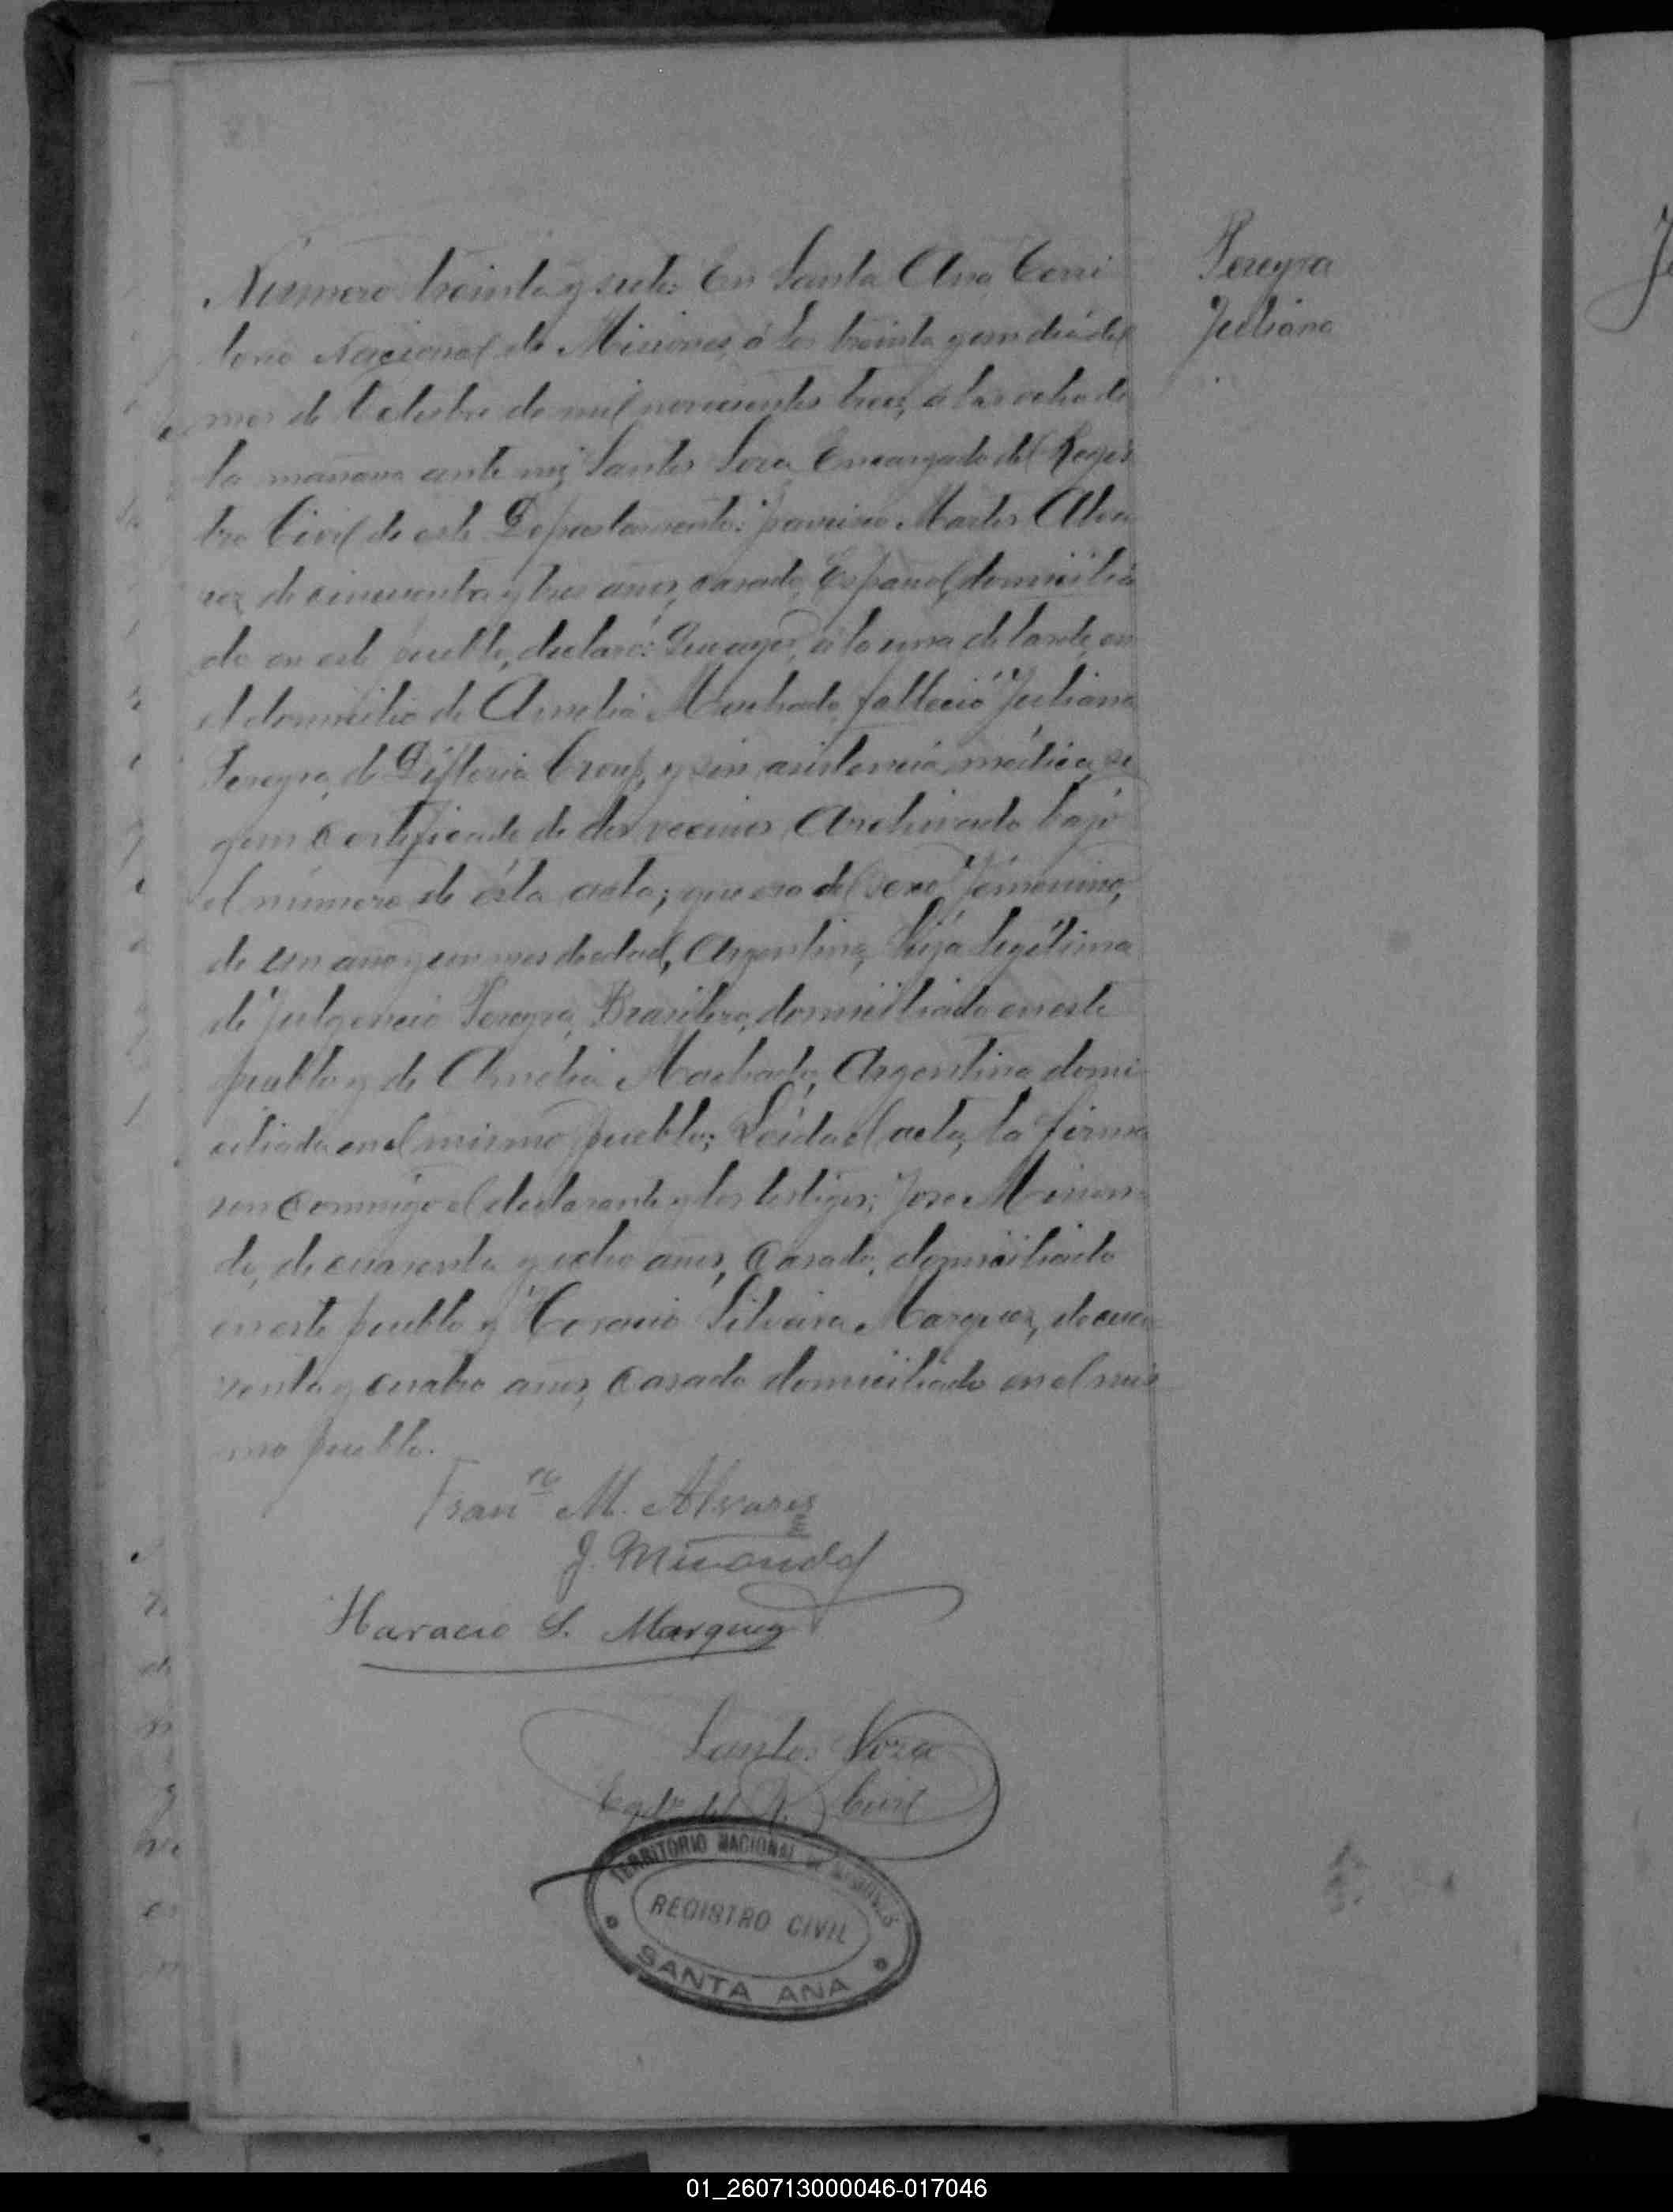 Pereyra
Juliana
Numero treinta y siete: En Santa Ana, Terri
torio Nacional de Misiones, á los treinta y un dia del
mes de Octubre de mil novecientos trece, á las ocho de
la mañana ante mi, Santos Sora, Encargado del Regis
tro Civil de este Departamento: Francisco Martos Alva
rez de cincuenta y tres años, casado, Español, domicilia
do en este pueblo, declaró: Que ayer, á la una de la tarde, en
el domicilio de Amelia Machado, falleció Juliana
Pereyra, de Difteria Croup, y sin asistencia médica, se
gun certificado de dos vecinos Archivado bajo
el número de ésta acta; que era del sexo Femenino,
de un año y un mes de edad, Argentina, hija legítima
de Fulgencio Pereyra, Brasilero, domiciliado en este
pueblo y de Amelia Machado, Argentina domi
ciliada en el mismo pueblo; Leida el acta, la firma
ron conmigo el declarante y los testigos; Jose Miran
do, de cuarenta y ocho años, Casado, domiciliado
en este pueblo y Horacio Silveira Marquez, de cua
renta y cuatro años, Casado domiciliado en el mis
mo pueblo.
Franco M. Alvarez
J. Miranda
Haracio S. Marquez
Santos Sora
Egdo del R. Civil
TERRITORIO NACIONAL DE MISIONES
REGISTRO CIVIL
SANTA ANA
01_260713000046-017046